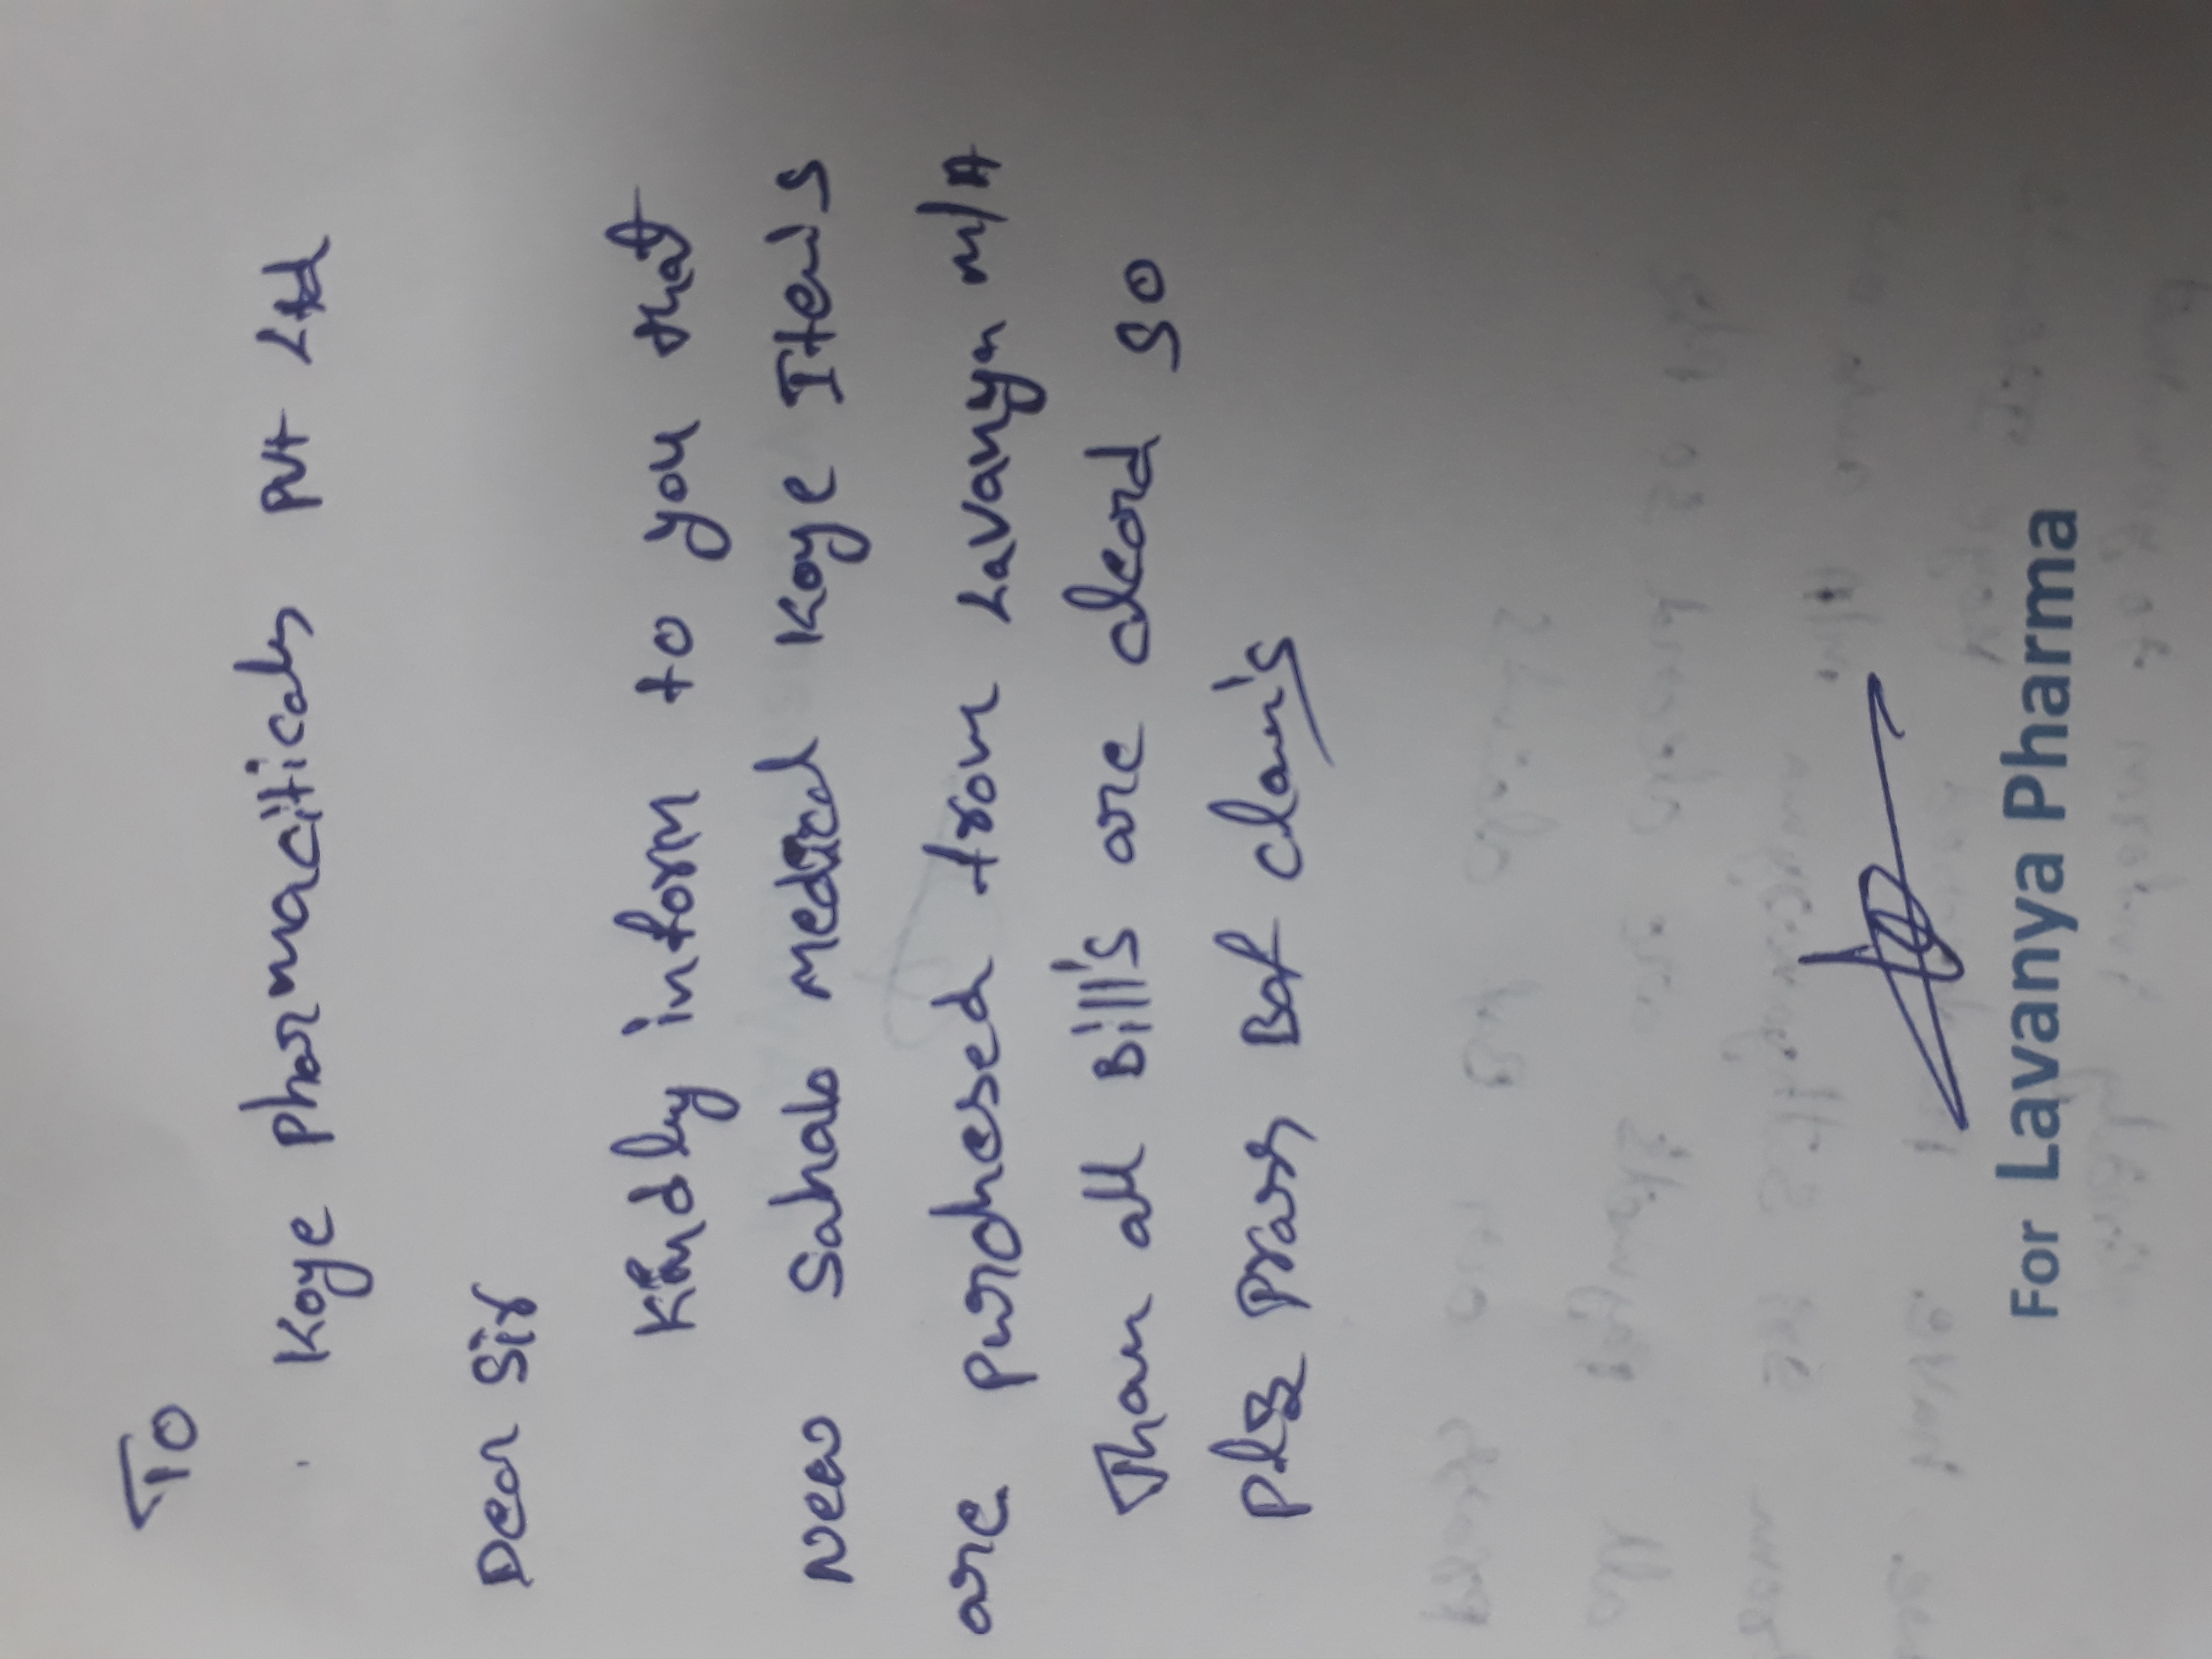 To
Koye Pharmaciticals Pvt Ltd
Dear Sir
Kindly inform to you that
New Sahab medical Koye Items
are purchesed from Lavanya m/H
Than all Bills are cleard so
plz pass Bof claim's
For Lavanya Pharma